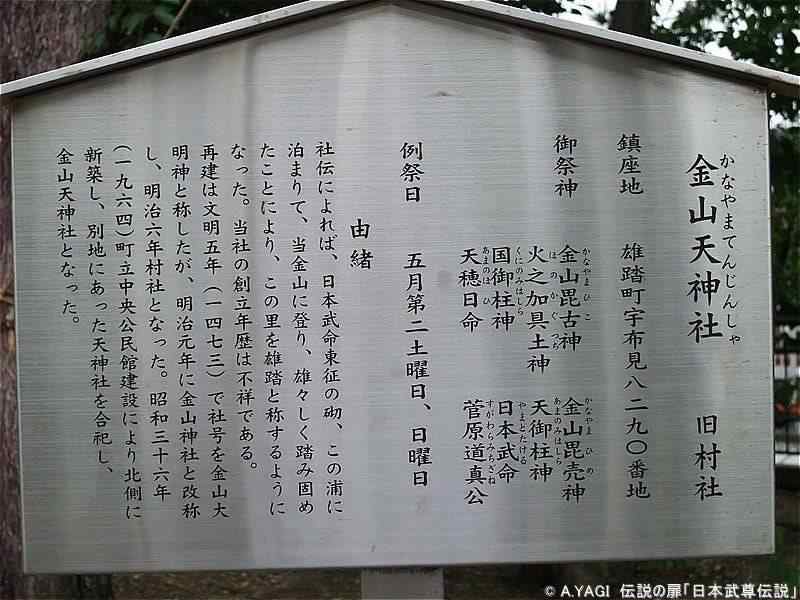 かなやまてんじんしゃ
金山天神社　旧村社
鎮座地　雄踏町宇布見八二九〇番地
かなやまひこ　かなやまひめ
御祭神　金山毘古神　金山毘売神
ほのかぐつち　あまのみはしら
火之加具土神　天御柱神
くにのみはしら　やまとたける
国御柱神　日本武命
あまのほひ　すがわらみちざね
天穂日命　菅原道真公
例祭日　五月第二土曜日、日曜日
由緒
社伝によれば、日本武命東征の砌、この浦に
泊まりて、当金山に登り、雄々しく踏み固め
たことにより、この里を雄踏と称するように
なった。当社の創立年歴は不祥である。
再建は文明五年（一四七三）で社号を金山大
明神と称したが、明治元年に金山神社と改称
し、明治六年村社となった。昭和三十六年
（一九六四）町立中央公民館建設により北側に
新築し、別地にあった天神社を合祀し、
金山天神社となった。
© A.YAGI 伝説の扉「日本武尊伝説」